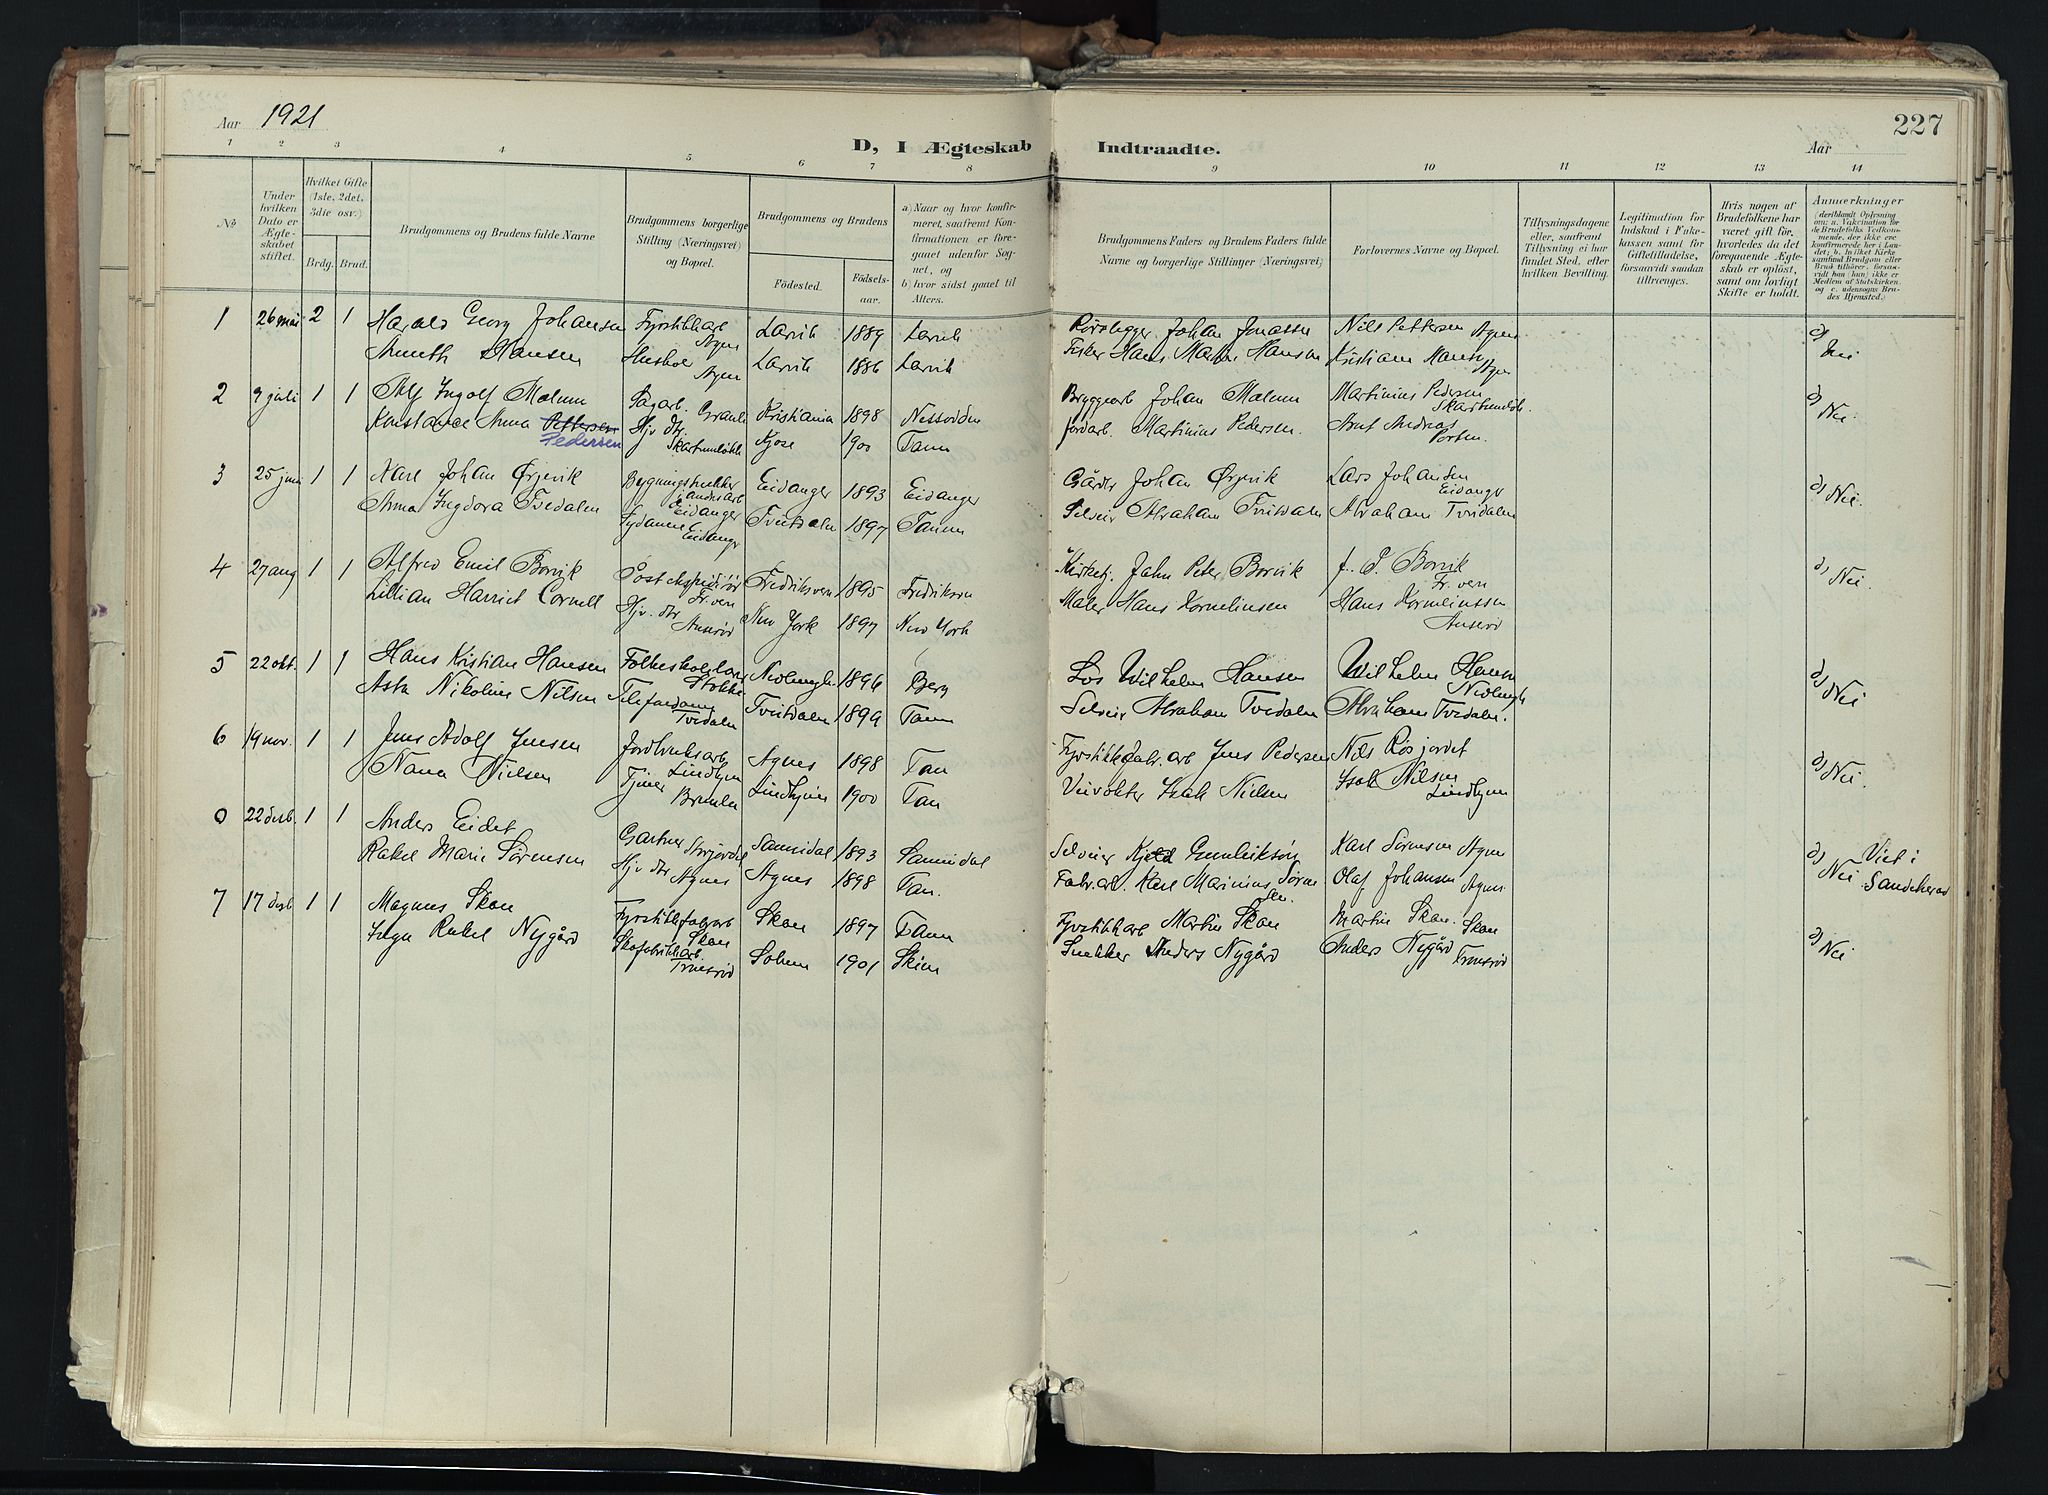 Aar 1921
D, I Ægteskab Indtraadte.
227
Aar
1 2 3 4 5 6 7 8 9 10 11 12 13 14
No
Under hvilken Dato er Ægteskabet stiftet.
Hvilket Gifte (1ste, 2det, 3die osv.)
Brdg. Brud.
Brudgommens og Brudens fulde Navne
Brudgommens borgerlige Stilling (Næringsvei) og Bopæl.
Brudgommens og Brudens
Födested. Födselsaar.
a) Naar og hvor konfirmeret, saafremt Konfirmationen er foregaaet udenfor Sognet, og
b) hvor sidst gaaet til Alters.
Brudgommens Faders og Brudens Faders fulde Navne og borgerlige Stillinger (Næringsvei)
Forlovernes Navne og Bopæl.
Tillysningsdagene eller, saafremt Tillysning ei har fundet Sted, efter hvilken Bevilling.
Legitimation for Indskud i Fakekassen samt for Giftetilladelse, forsaavidt saadan tiltrænges.
Hvis nogen af Brudefolkene har været gift för, hvorledes da det foregaaende Ægteskab er oplöst, samt om lovligt Skifte er holdt.
Anmærkninger
1 26 mai 2 1 Harald Georg Johansen Fyrstikkarb Agnes Larvik 1889 Larvik Rørlegger Johan Jonassen Nils Pettersen Agnes d) Nei
Hansen Agnes Larvik 1886 Larvik Fisker Hans Martin Hansen Kristian Hansen Agnes
2 9 juli 1 1 Alf Ingolf Malum Sagarb. Granli Kristiania 1898 Nessodden Bryggearb Johan Malum Martinius Pedersen d) Nei.
Konstance Anna Pettersen Pedersen Hjv. dtr. Kjose 1900 Tanum Jordarb. Martinius Pedersen. Andreas
3 25 juni 1 1 Karl Johan Ørjevik Bygningssnekker Eidanger Eidanger 1893 Eidanger Gårdbr Johan Ørjevik Lars Johansen Eidanger d) Nei.
Anna Ingdora Tvedalen Eidanger Tveidalen 1897 Tanum Selveier Abraham Tveidalen Abraham Tvedalen
4 27 aug 1 1 Alfred Emil Borvik Postekspeditør Fr.vern Fredriksvern 1895 Fredriksvern Kirketj. Johan Peter Borvik J. P. Borvik Fr. vern d) Nei.
Lillian Harriet Cornell Hjv. dtr New York 1897 New York Maler Hans Kornelinsen Hans Kornelinssen
5 22 okt. 1 1 Hans Kristian Hansen Folkeskolelærer Stokke Nevlungh. 1896 Berg Los Wilhelm Hansen Wilhelm Hansen Nevlungh d) Nei
Asta Nikoline Nilsen Telefondame Tvedalen Tveidalen 1899 Tanum Selveier Abraham Tvedalen Abraham Tvedalen.
6 19 nov. 1 1 Jens Adolf Jensen Jordbruksarb Lindhjem Agnes 1898 Tan Fyrstikkfabr. arb Jens Pedersen Nils Røsjordet d) Nei.
Nana Nielsen Tjener Lindhjem 1900 Tan Veivokter Isak Nielsen Isak Nilsen Lindhjem
0 22 desb. 1 1 Anders Eidet Gartner Sannidal 1893 Sannidal Selveier Karl Sørensen Agnes d) Nei Viet i Sandeherad
Rakel Marie Sørensen Hjv. dtr Agnes Agnes 1898 Tan. Fabr.arb. Karl Marinius Sørensen. Olaf Johansen Agnes.
7 17 desb 1 1 Magnus Skan Fyrstikkfabrarb Skan Skan 1897 Tanum Fyrstikkarb Martin Skan Martin Skan. Skan d) Nei
Rakel Nygård Skofabrikkarb. 1901 Skien Snekker Anders Nygård Anders Nygård